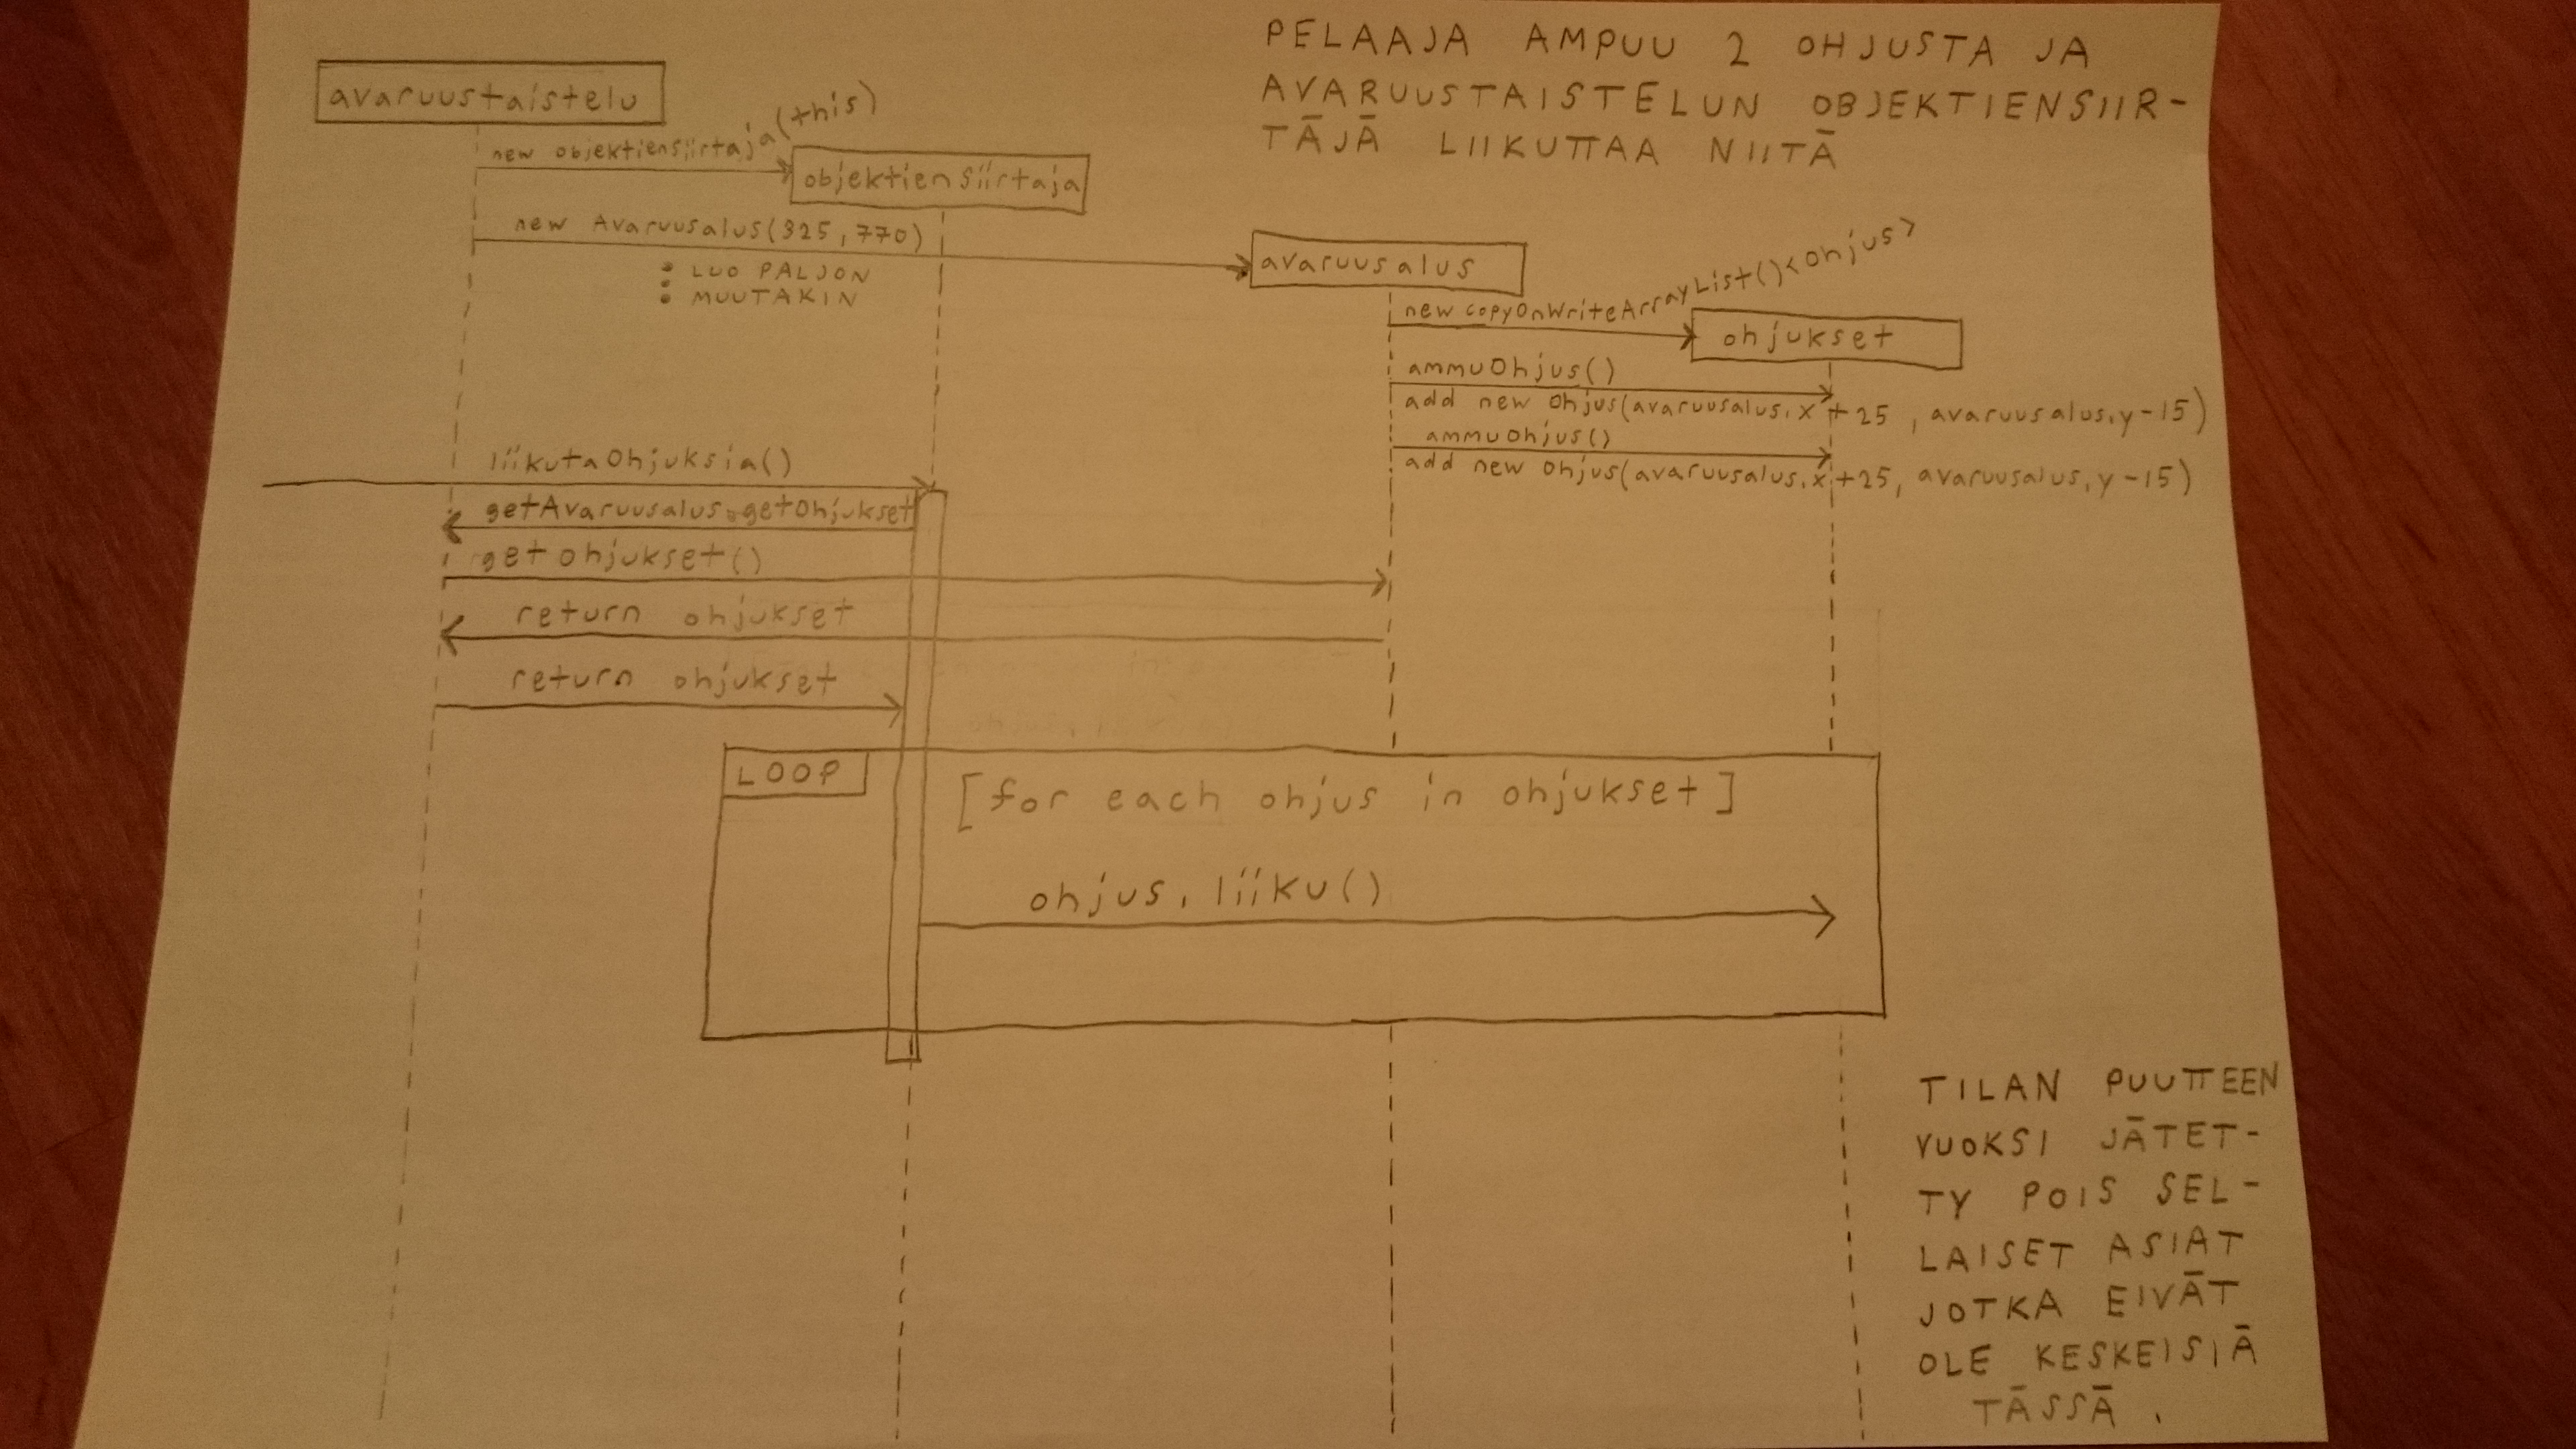 PELAAJA AMPUU 2 OHJUSTA JA
AVARUUSTAISTELUN OBJEKTIENSIIR-
TÄJÄ LIIKUTTAA NIITÄ
avaruustaistelu
new objektiensiirtaja(this)
objektiensiirtaja
new Avaruusalus(325,770)
LUO PALJON
MUUTAKIN
avaruusalus
new copyOnWriteArrayList()<ohjus>
ohjukset
ammuOhjus()
add new Ohjus(avaruusalus.x+25, avaruusalus.y-15)
ammuOhjus()
add new Ohjus(avaruusalus.x+25, avaruusalus.y-15)
liikutaOhjuksia()
getAvaruusalus.getOhjukset
getohjukset()
return ohjukset
return ohjukset
LOOP
[for each ohjus in ohjukset]
ohjus.liiku()
TILAN PUUTTEEN
VUOKSI JÄTET-
TY POIS SEL-
LAISET ASIAT
JOTKA EIVÄT
OLE KESKEISIÄ
TÄSSÄ.